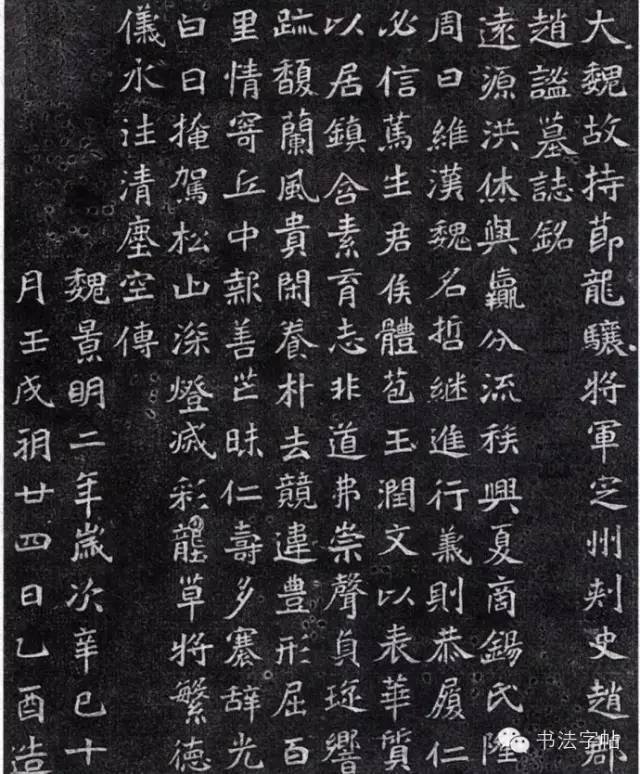 大魏故持節龍驤將軍定州刺史趙郡
趙謐墓誌銘
遠源洪休與嬴分流族興夏商錫氏隆
周曰維漢魏名哲継進行義則恭履仁
必信篤生君侯體苞玉潤文以表華質
以居鎮含素育志非道弗崇聲貞琁響
跡馥蘭風貴閑養朴去競違豊形屈百
里情寄丘中報善芒昧仁壽多褰辭光
白日掩駕松山深燈滅彩壟草將繁德
儀永往清塵空傳
魏景明二年歲次辛巳十
月壬戌朔廿四日乙酉造
书法字帖